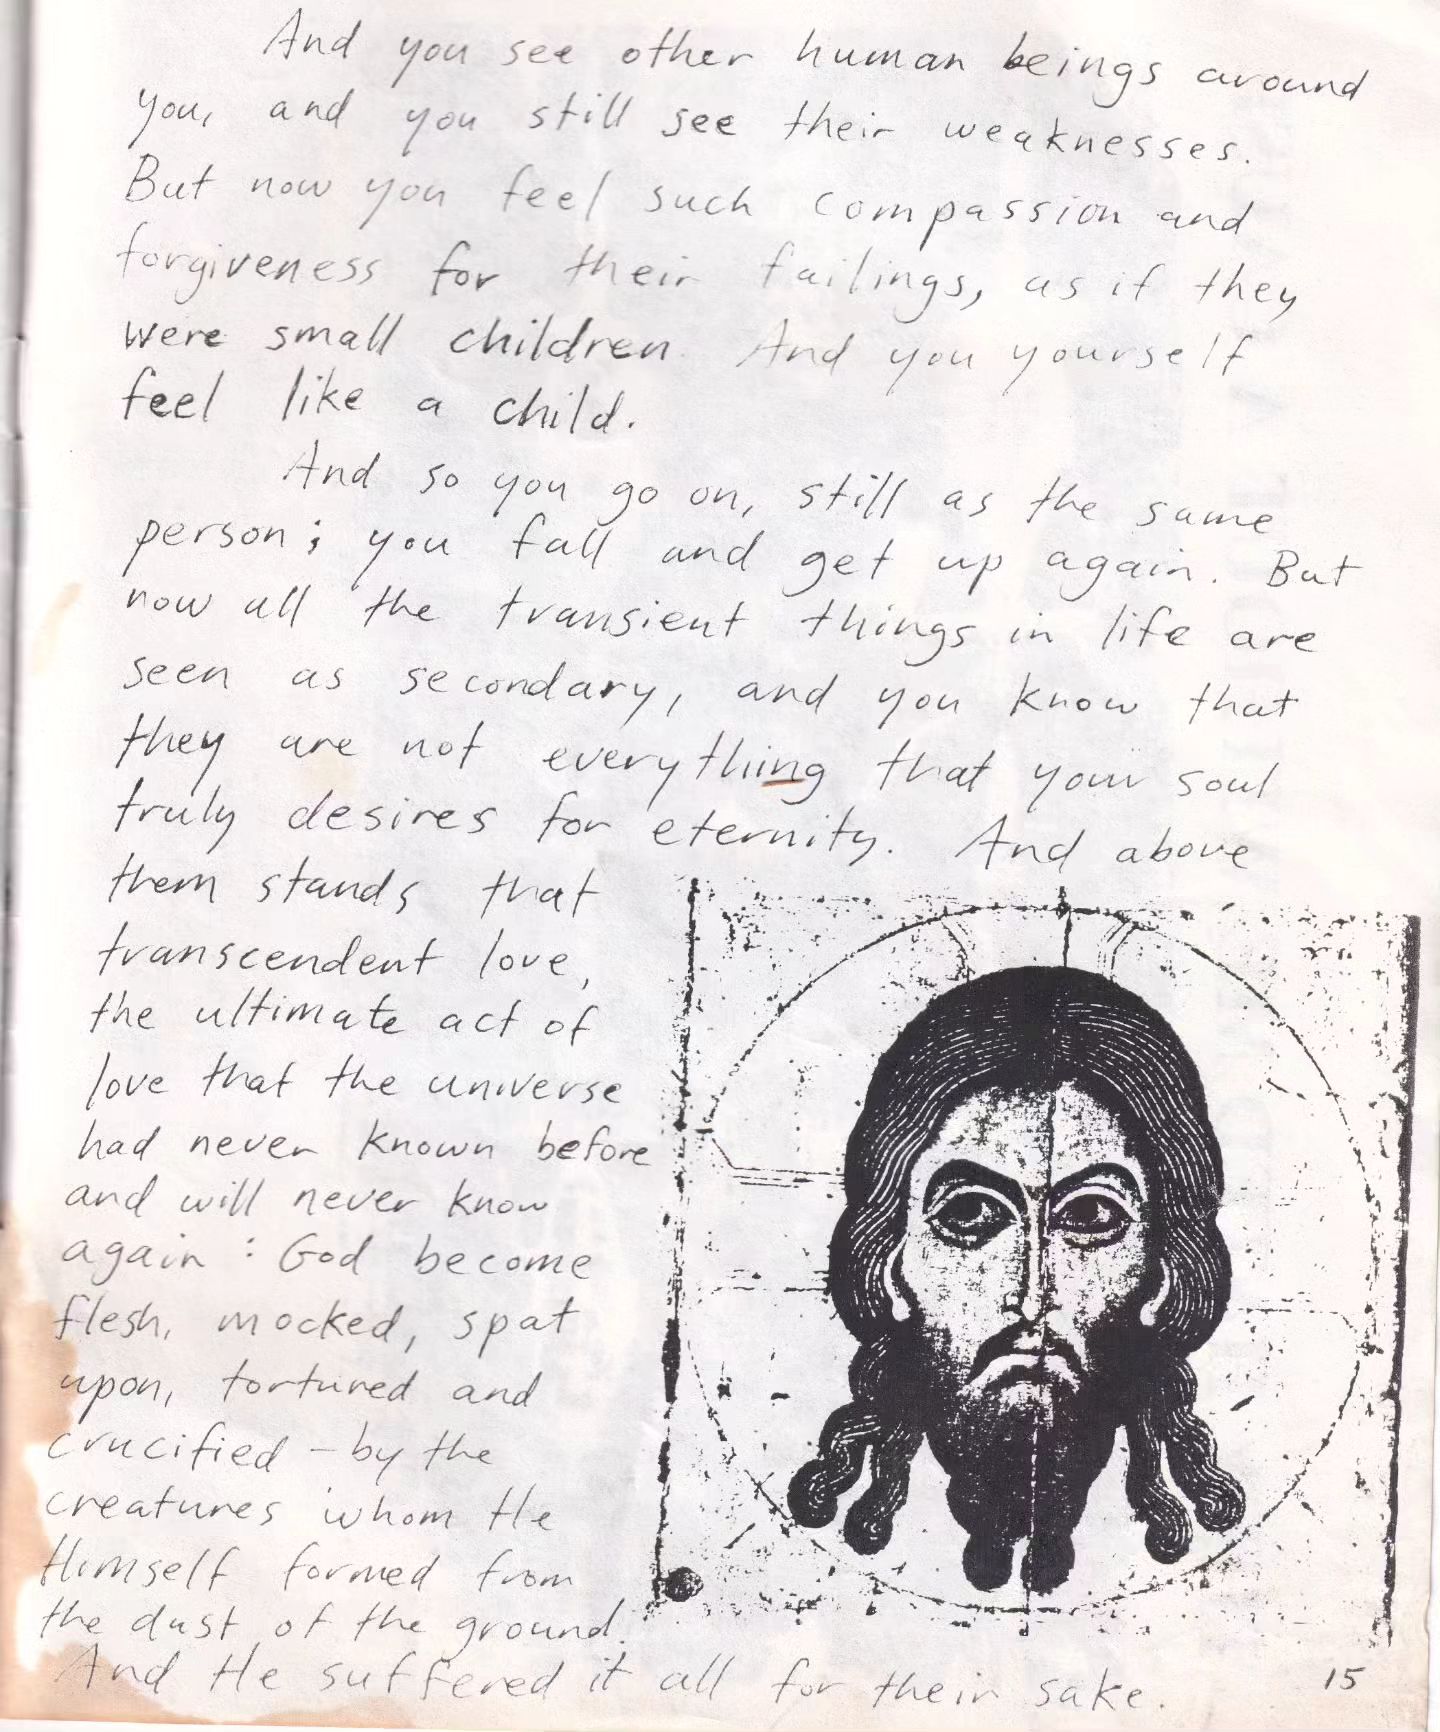 And you see other human beings around
you, and you still see their weaknesses.
But now you feel such compassion and
forgiveness for their failings, as if they
were small children. And you yourself
feel like a child.
And so you go on, still as the same
person; you fall and get up again. But
now all the transient things in life are
seen as secondary, and you know that
they are not everything that your soul
truly desires for eternity. And above
them stands that
transcendent love,
the ultimate act of
love that the universe
had never known before
and will never know
again: God become
flesh, mocked, spat
upon, tortured and
crucified – by the
creatures whom He
Himself formed from
the dust of the ground.
And He suffered it all for their sake.
15